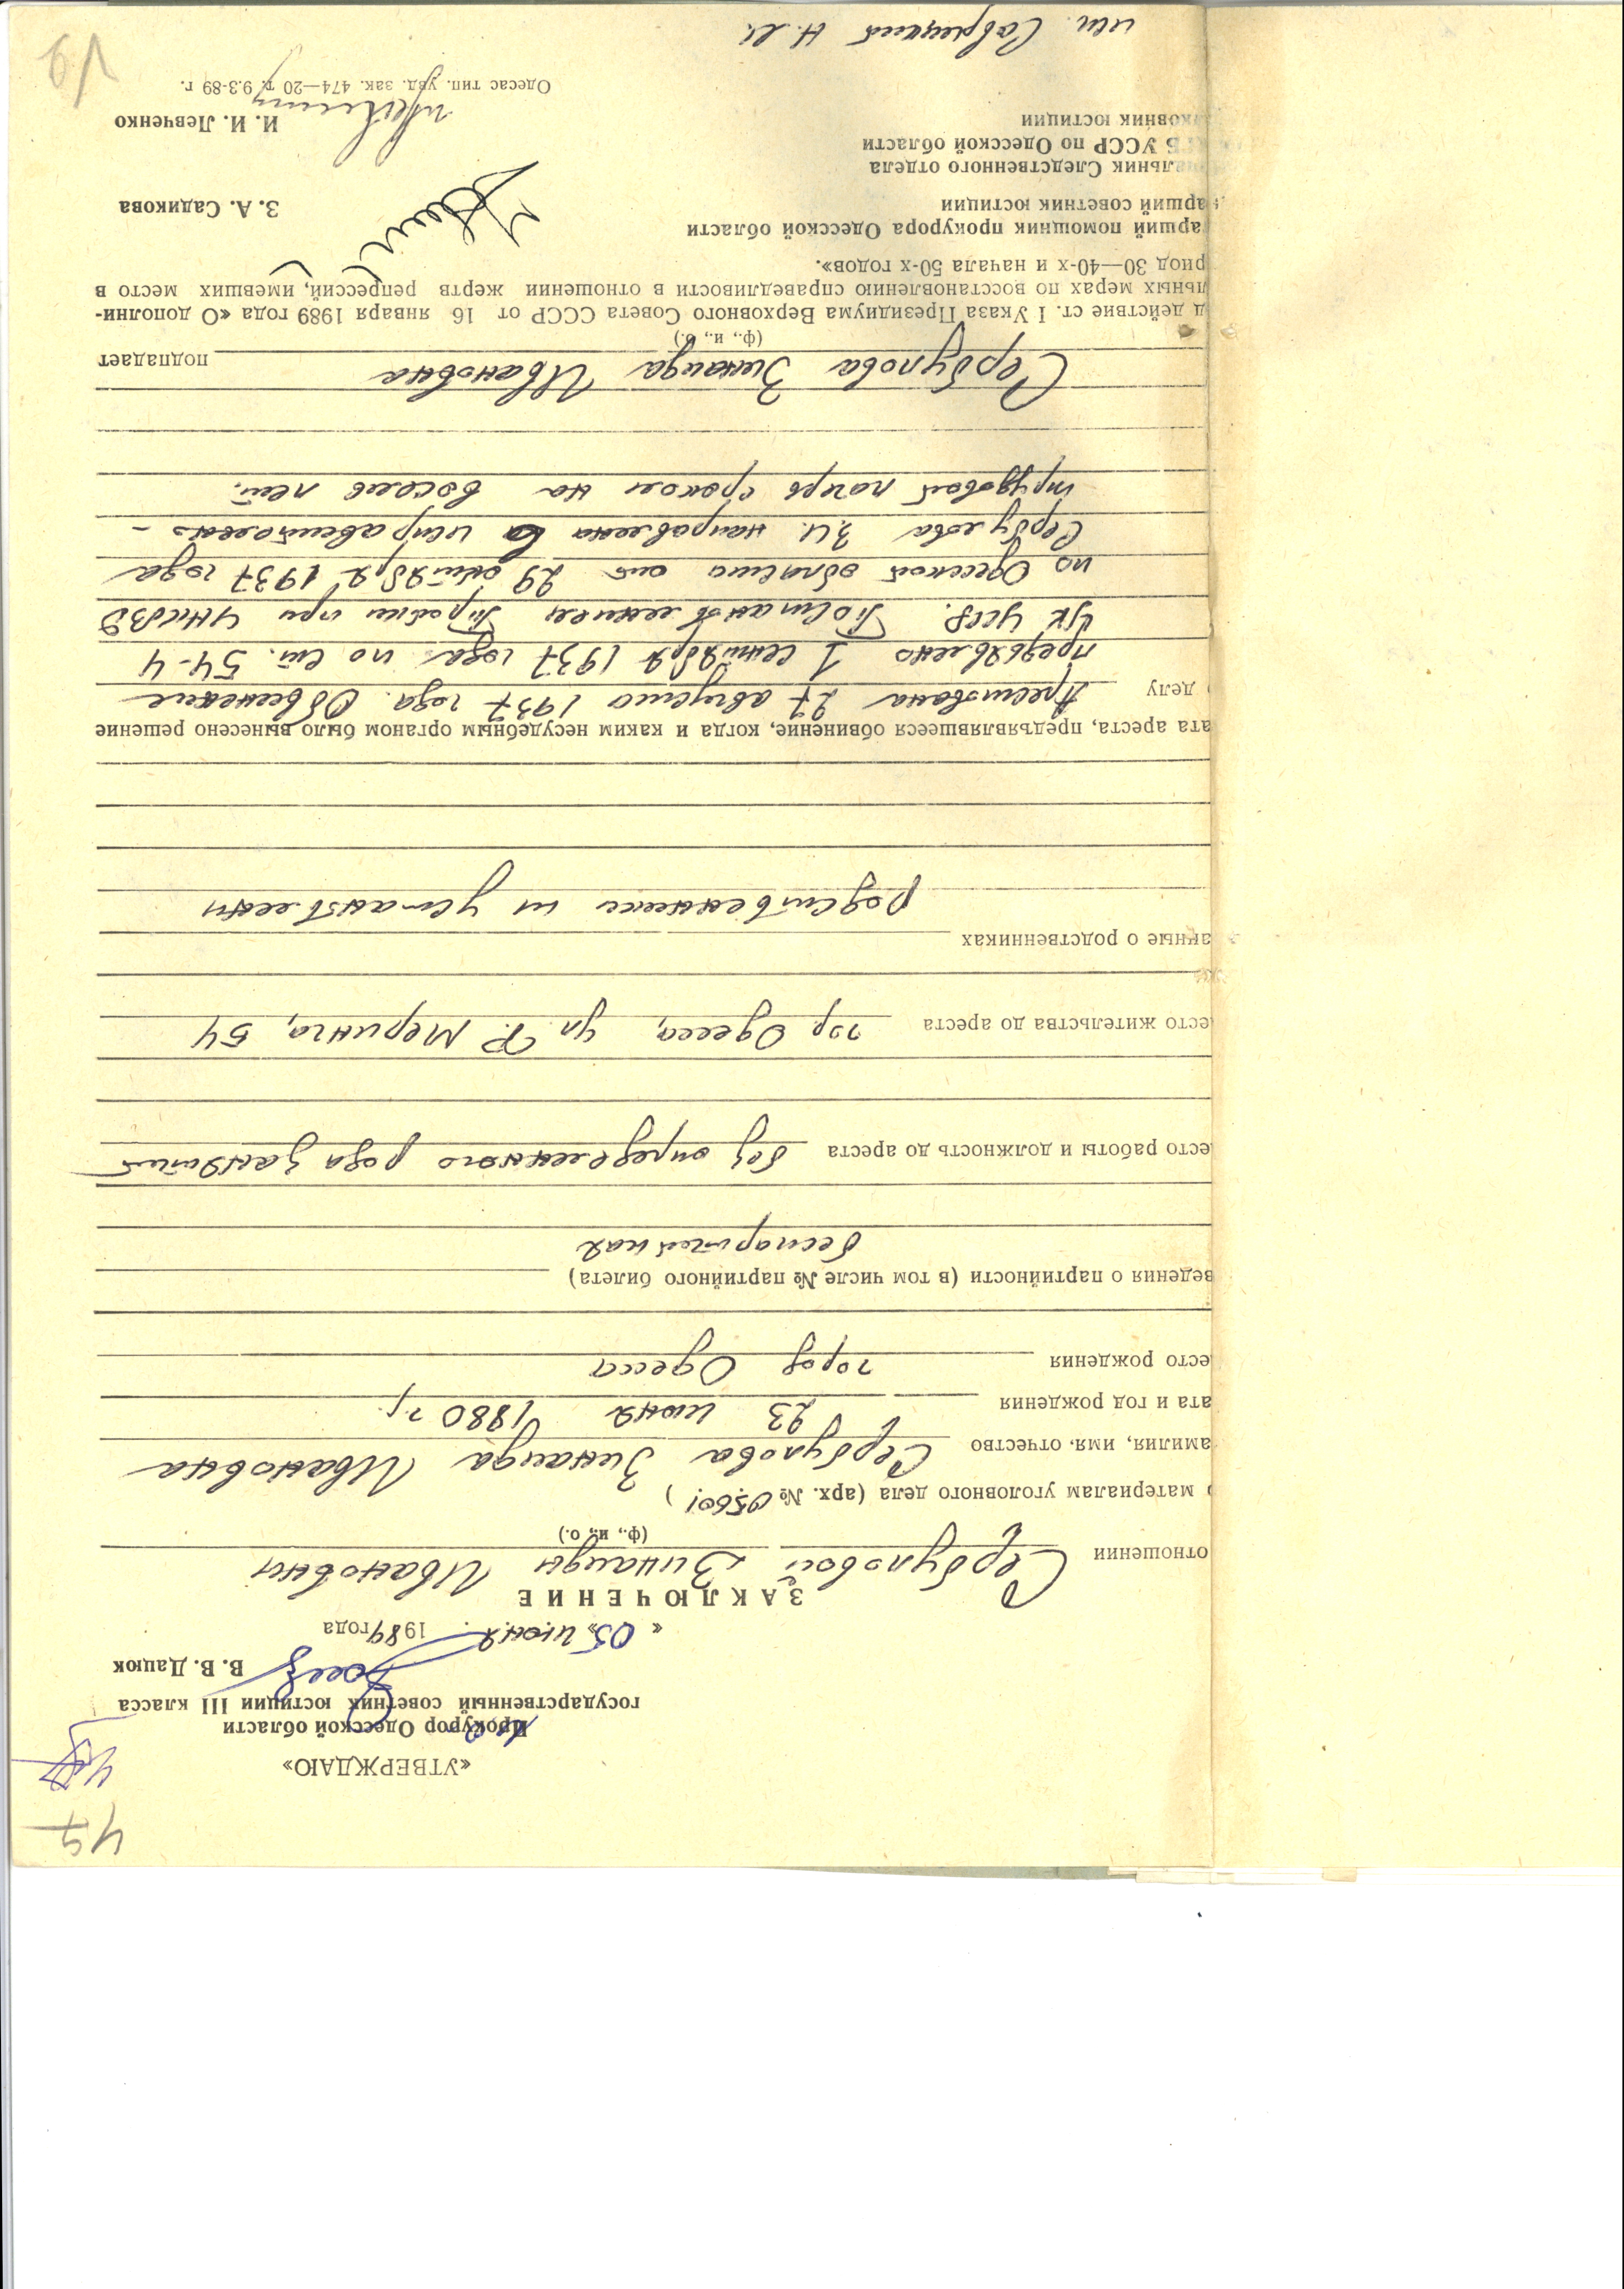 47
«УТВЕРЖДАЮ»
Прокурор Одесской области
государственный советник юстиции III класса
В. В. Дацюк
« 05 » июня 1989 года
ЗАКЛЮЧЕНИЕ
отношении Сербуловой Зинаиды Ивановны
(ф., и., о.)
о материалам уголовного дела (арх. № 05601)
амилия, имя, отчество Сербулова Зинаида Ивановна
ата и год рождения 23 июня 1880 г.
есто рождения город Одесса
ведения о партийности (в том числе № партийного билета)
беспартийная
есто работы и должность до ареста без определенного рода занятий
есто жительства до ареста гор. Одесса, ул. Ф. Меринга, 54
анные о родственниках
родственники не установлены
ата ареста, предъявлявшееся обвинение, когда и каким несудебным органом было вынесено решение
о делу Арестована 27 августа 1937 года. Обвинение
предъявлено 1 сентября 1937 года по ст. 54-4
УК УССР. Постановлением Тройки при УНКВД
по Одесской области от 29 октября 1937 года
Сербулова З.И. направлена в исправительно-
трудовой лагерь сроком на восемь лет.
Сербулова Зинаида Ивановна подпадает
(ф., и., о.)
д действие ст. I Указа Президиума Верховного Совета СССР от 16 января 1989 года «О дополни-
льных мерах по восстановлению справедливости в отношении жертв репрессий, имевших место в
риод 30—40-х и начала 50-х годов».
арший помощник прокурора Одесской области
арший советник юстиции З. А. Садикова
альник Следственного отдела
ГБ УССР по Одесской области
ковник юстиции И. И. Левченко
Одесас тип. увд. зак. 474—20 т. 9.3-89 г.
исп. Савицкий Н.И.